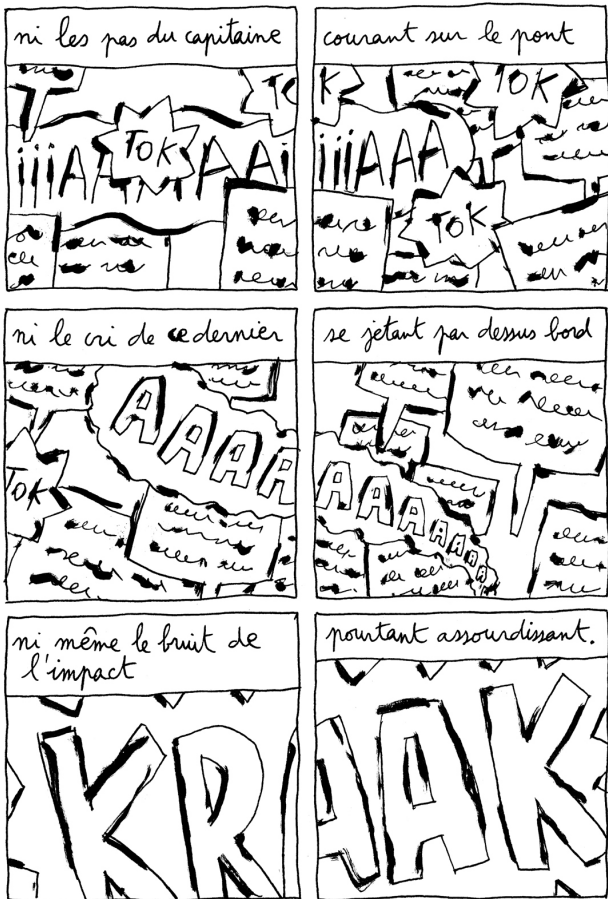 ni les pas du capitaine
TOK
TO
iiiAA
AAi
courant sur le pont
K
TOK
iiiAAA
TOK
ni le cri de ce dernier
AAAA
TOK
se jetant par dessus bord
AAAAAAAA
ni même le bruit de
l'impact
KR
pourtant assourdissant.
AAK